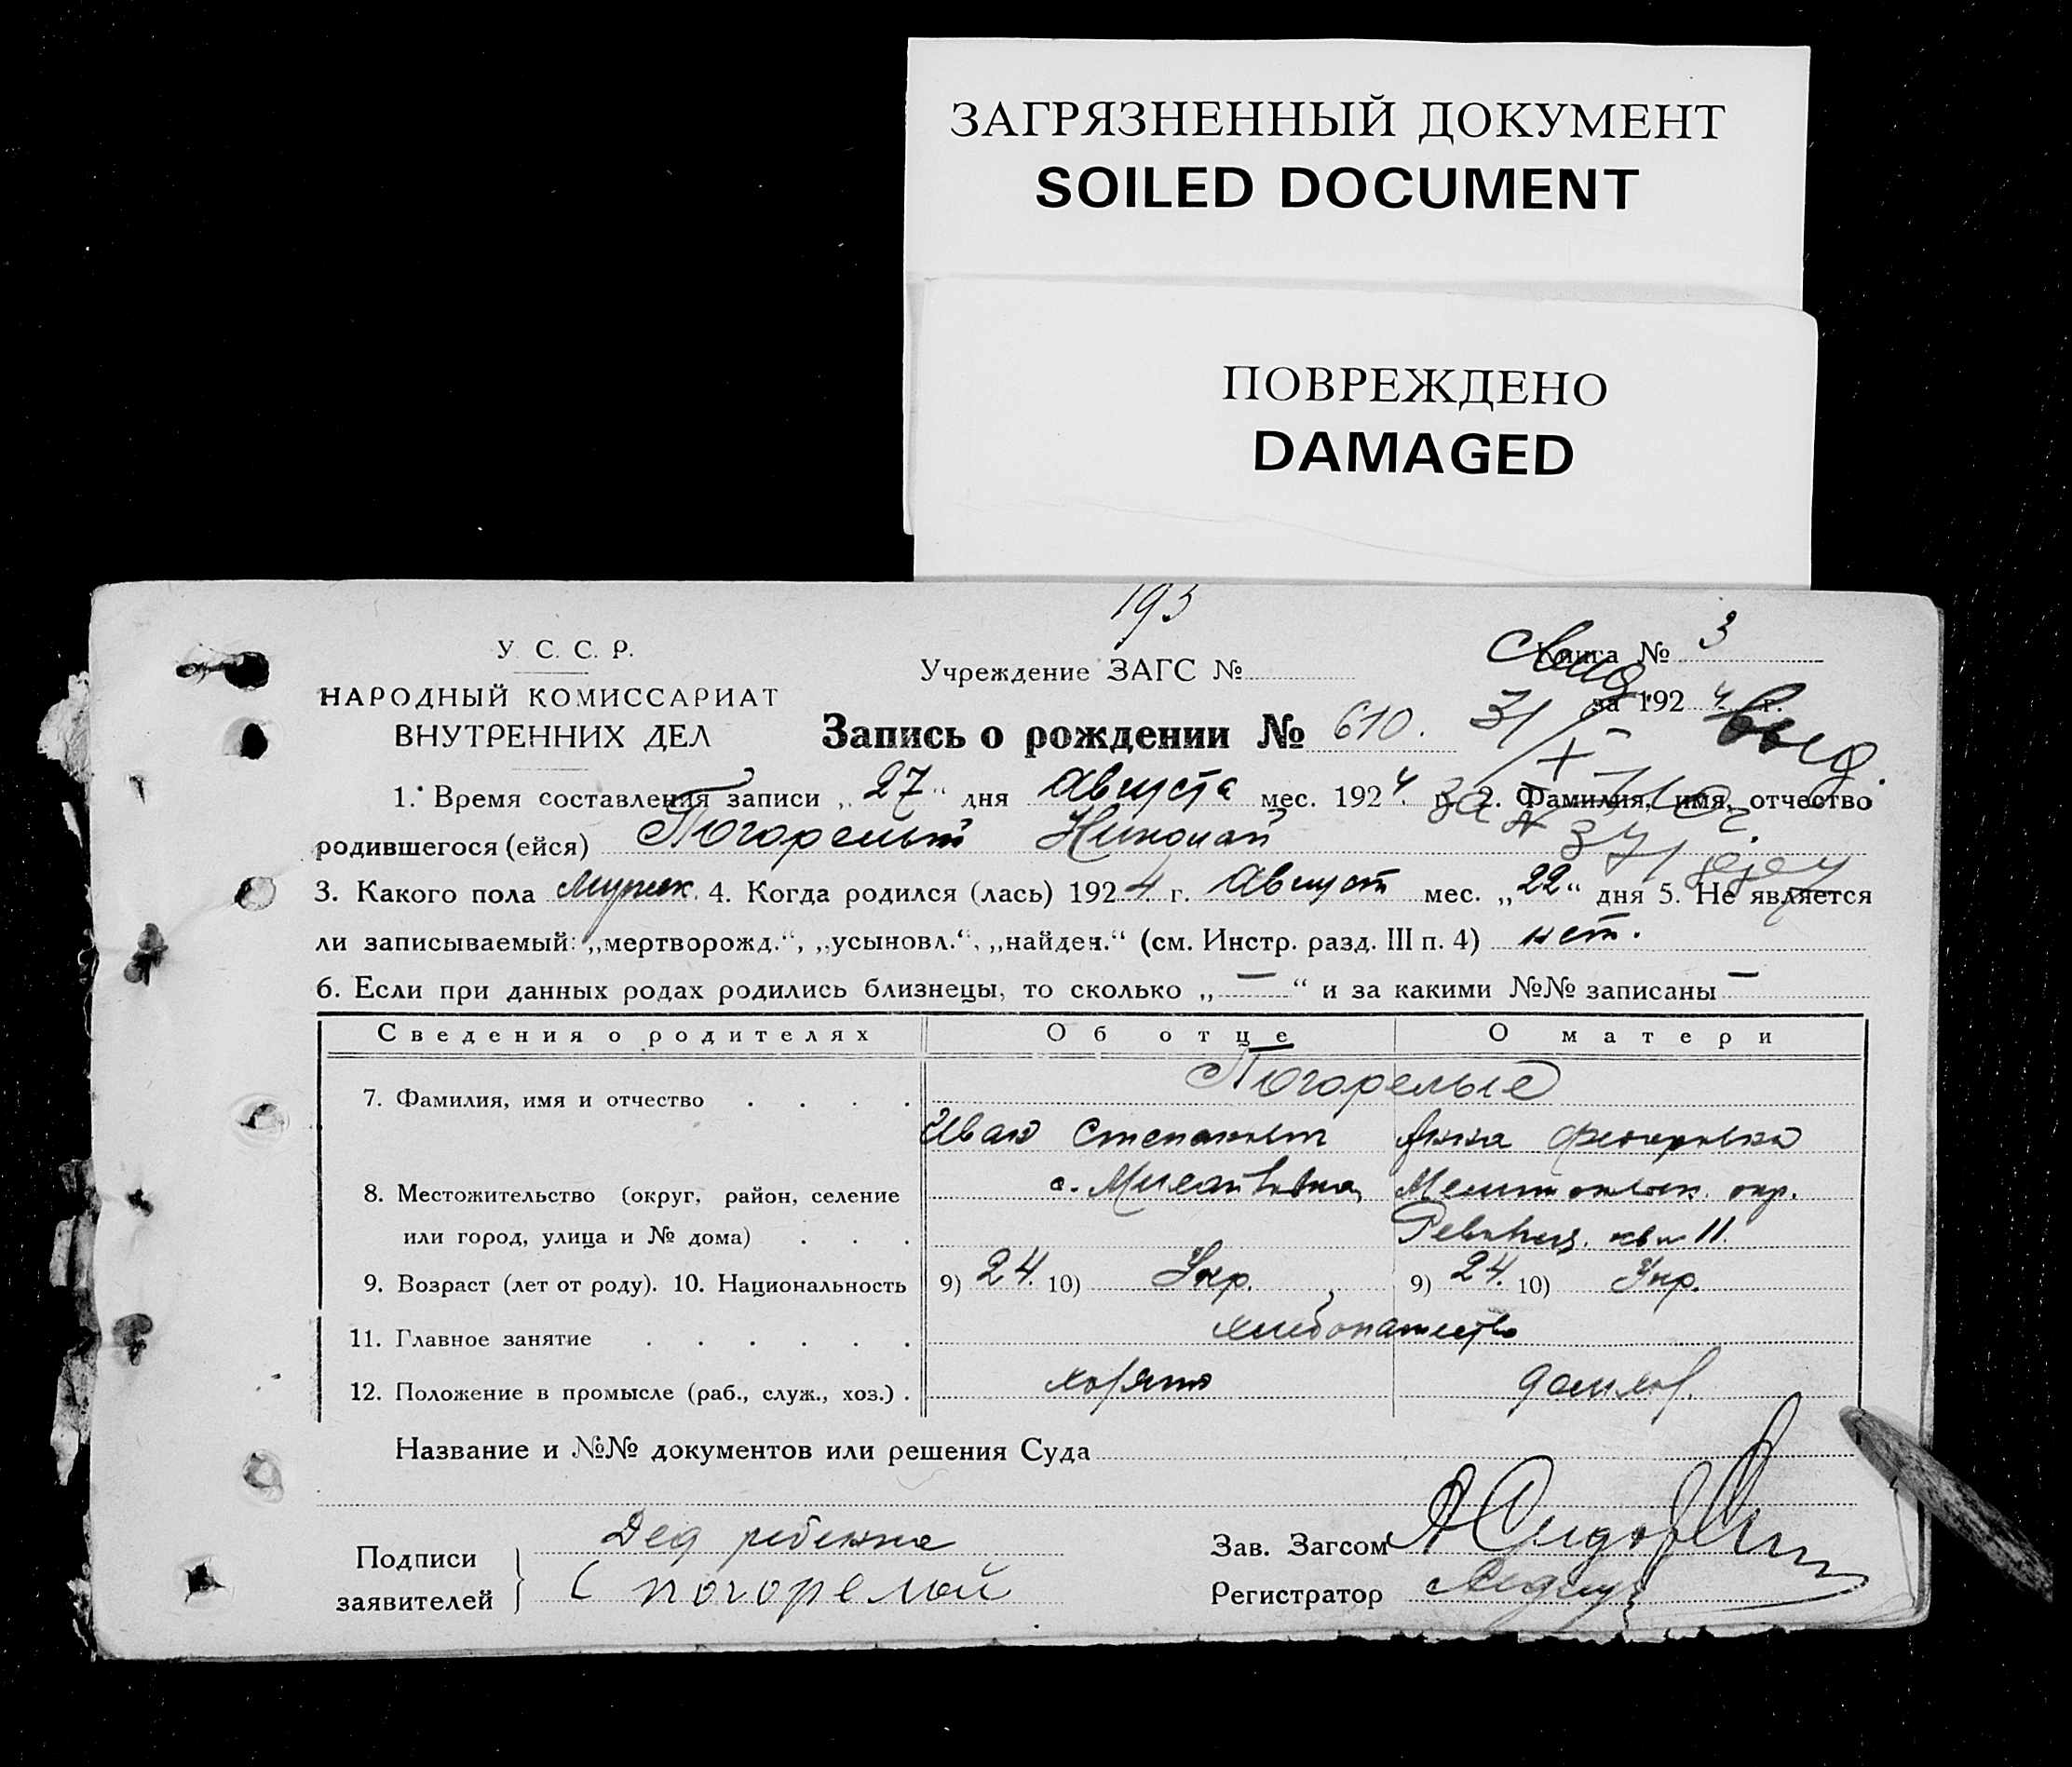 ЗАГРЯЗНЕННЫЙ ДОКУМЕНТ
SOILED DOCUMENT
ПОВРЕЖДЕНО
DAMAGED
193
У. С. С. Р.
НАРОДНЫЙ КОМИССАРИАТ
ВНУТРЕННИХ ДЕЛ
Учреждение ЗАГС №
Книга № 3
за 1924 г.
Запись о рождении № 610.
Выд.
1. Время составления записи „27“ дня Августа мес. 1924 г. 2. Фамилия, имя, отчество
родившегося (ейся) Погорелый Николай
3. Какого пола мужск. 4. Когда родился (лась) 1924 г. Август мес. „22“ дня 5. Не является
ли записываемый: „мертворожд.“, „усыновл.“, „найден.“ (см. Инстр. разд. III п. 4) нет.
6. Если при данных родах родились близнецы, то сколько „—“ и за какими №№ записаны —
Сведения о родителях Об отце О матери
7. Фамилия, имя и отчество Погорелые
Иван Степанов Анна
8. Местожительство (округ, район, селение
или город, улица и № дома) 11.
9. Возраст (лет от роду). 10. Национальность 9) 24. 10) Укр. 9) 24. 10) Укр.
11. Главное занятие хлебопашество
12. Положение в промысле (раб., служ., хоз.)
Название и №№ документов или решения Суда
Подписи заявителей
Дед ребенка
С погорелой
Зав. Загсом
Регистратор